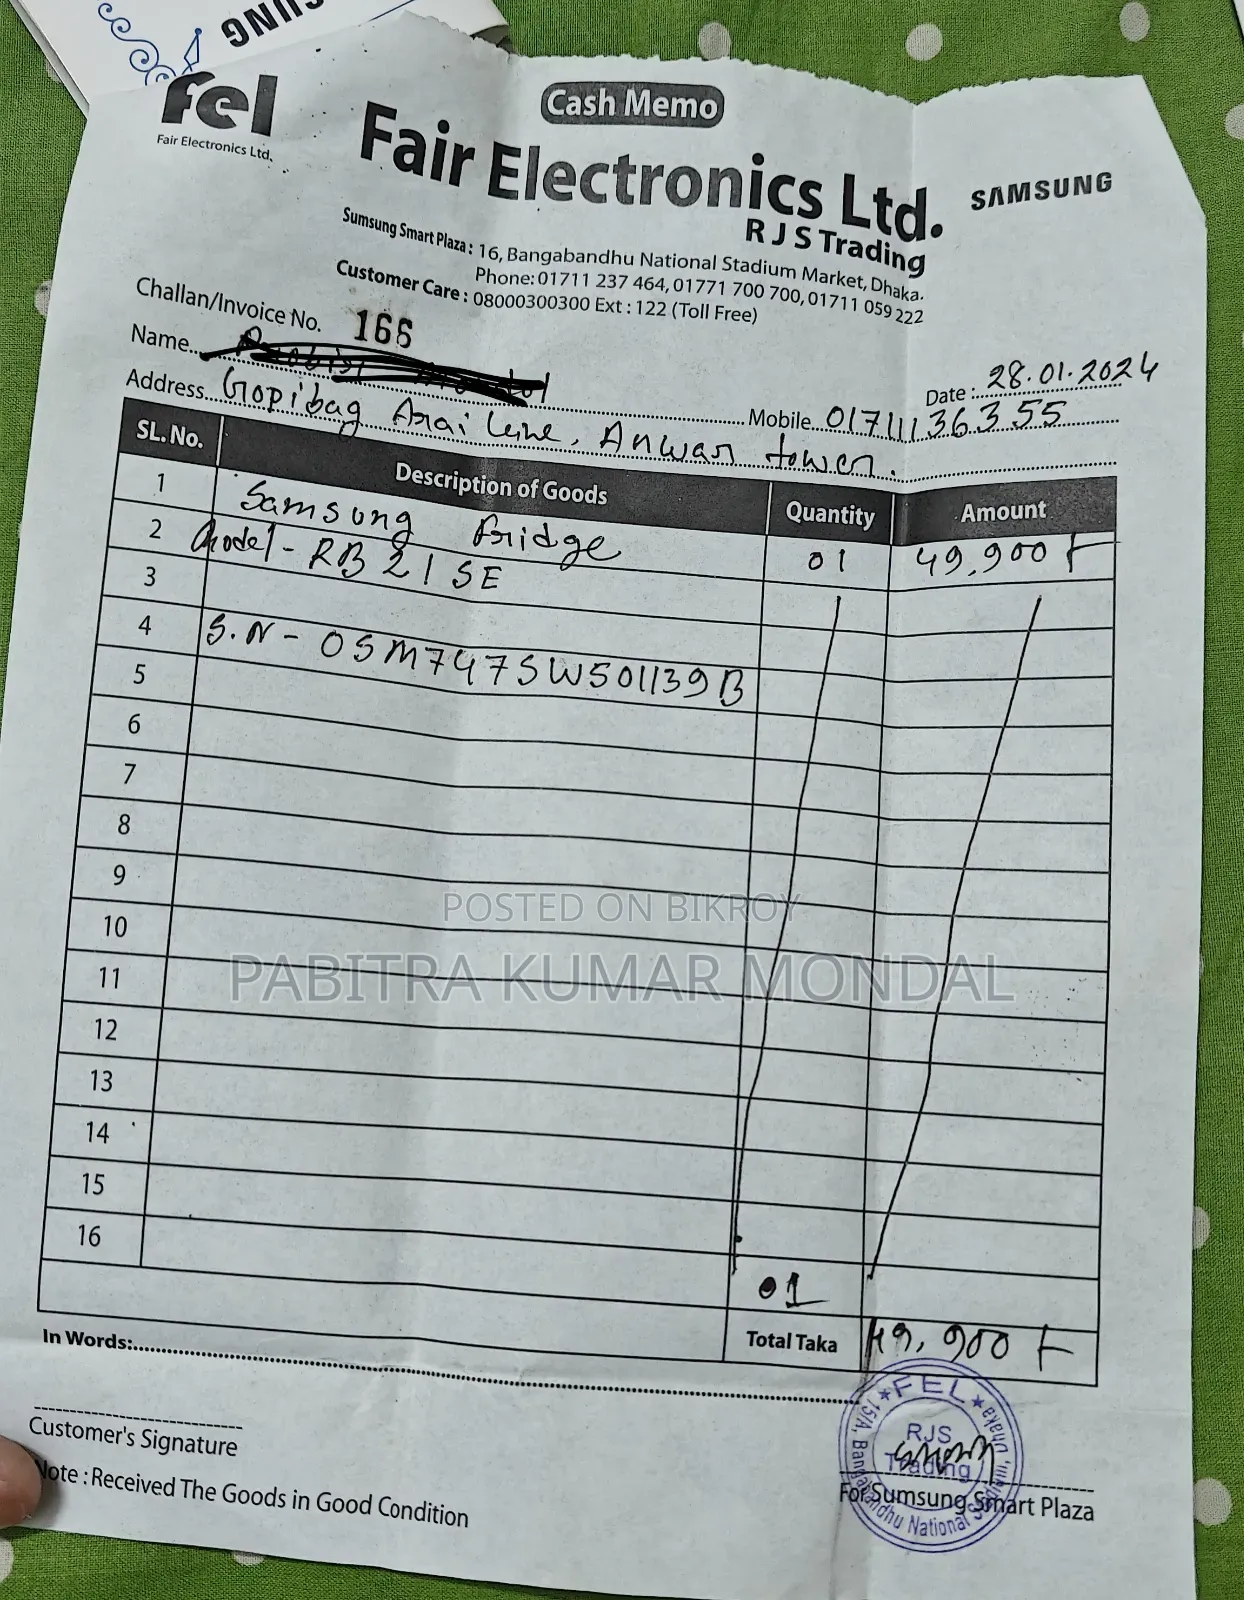 SUNG
fel
Fair Electronics Ltd.
Cash Memo
Fair Electronics Ltd.
SAMSUNG
R J S Trading
Sumsung Smart Plaza : 16, Bangabandhu National Stadium Market, Dhaka.
Phone: 01711 237 464, 01771 700 700, 01711 059 222
Customer Care : 08000300300 Ext : 122 (Toll Free)
Challan/Invoice No. 166
Name
Date : 28.01.2024
Mobile 01711136355
Address Gopibag Arai Leine, Anwar tower.
SL. No. Description of Goods Quantity Amount
1 Samsung Fridge 01 49,900 ৳
2 Model - RB 21 SE
3
4 S.N - 0SM747SW501139B
5
6
7
8
9
10
11
12
13
14
15
16
01
Total Taka 49,900 ৳
In Words:
POSTED ON BIKROY
PABITRA KUMAR MONDAL
Customer's Signature
Note : Received The Goods in Good Condition
FEL
RJS
Trading
15/A, Bangabandhu National Stadium, Dhaka
For Sumsung Smart Plaza